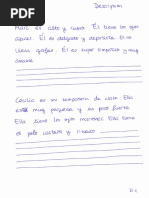 Descripción
Marc es alto y rubio. Él tiene los ojos
azules. Él es delgado y deportista. Él no
lleva gafas. Él es super simpático y muy
amable
Cecilia es mi compañera de clase. Ella
es muy pequeña y es poco fuerte.
Ella tiene los ojos marrones. Ella tiene
el pelo castaño y